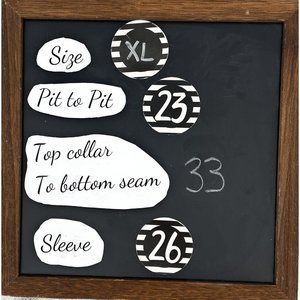 Size XL
Pit to Pit 23
Top collar
To bottom seam 33
Sleeve 26